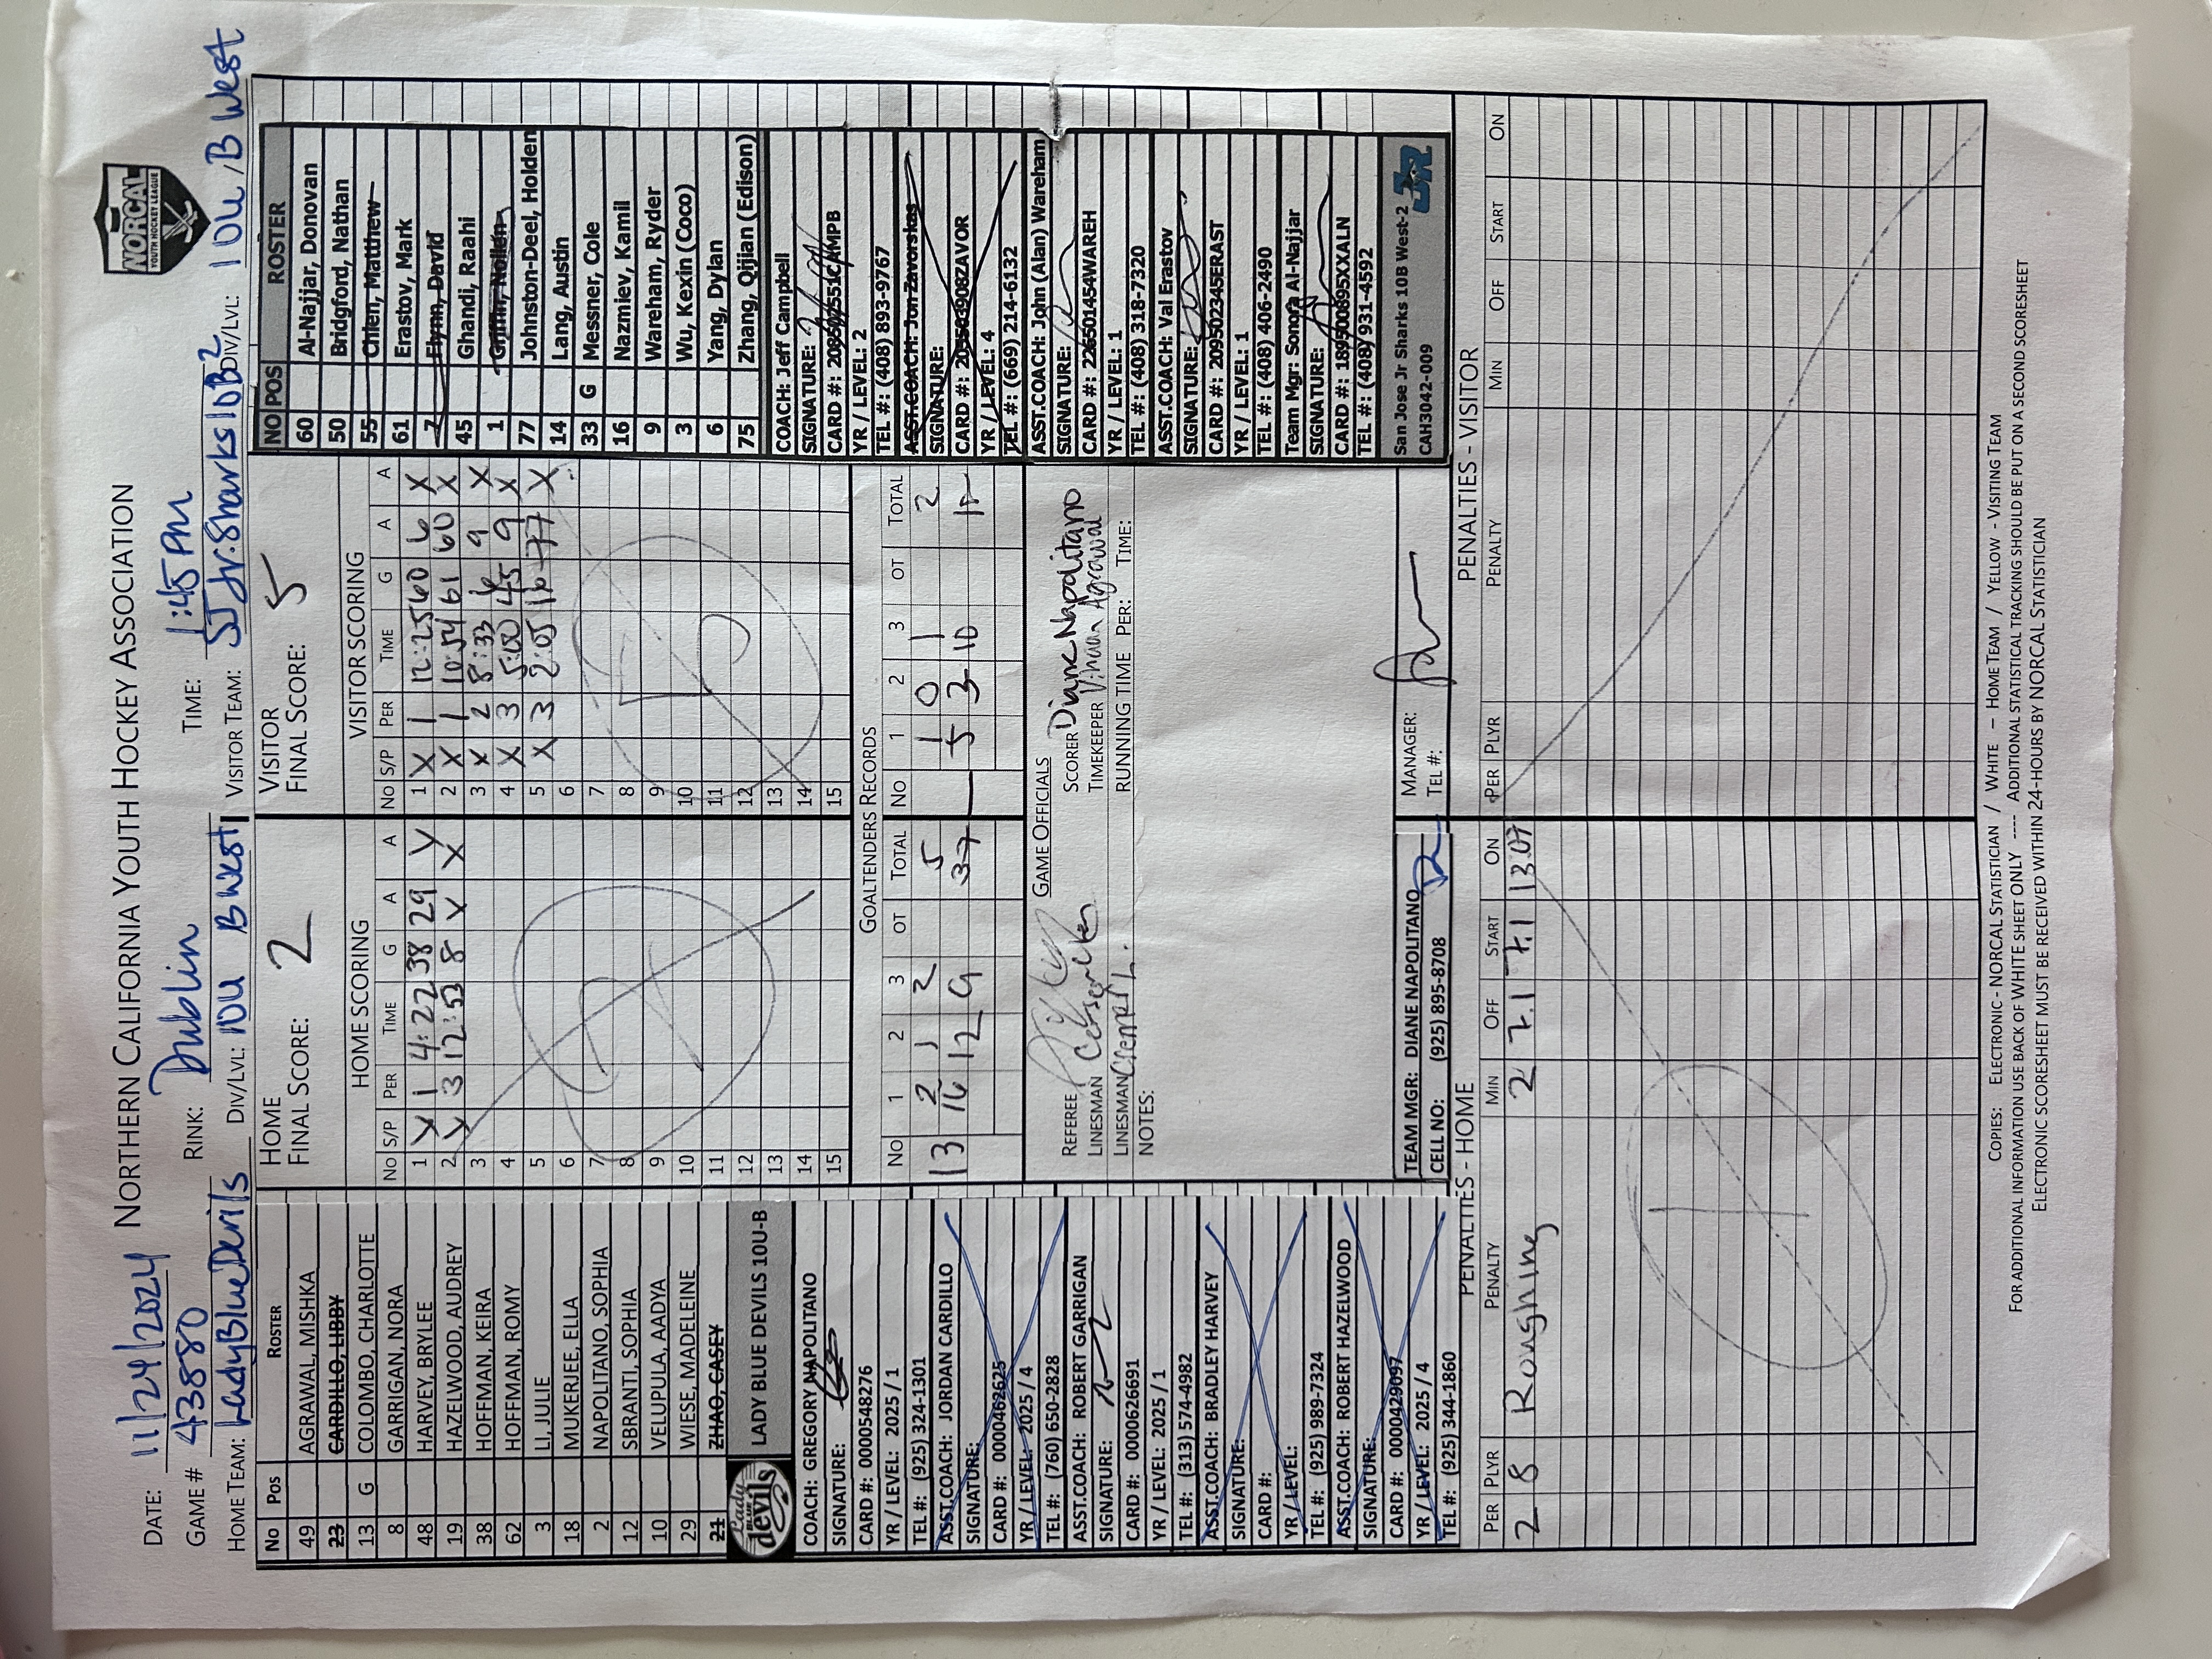 NORTHERN CALIFORNIA YOUTH HOCKEY ASSOCIATION
NORCAL
YOUTH HOCKEY LEAGUE
DATE: 11/24/2024 RINK: Dublin TIME: 1:45 PM
GAME # 43880
HOME TEAM: LadyBlueDevils DIV/LVL: 10U B West VISITOR TEAM: SJ Jr. Sharks 10B 2 DIV/LVL: 10U B West
No Pos ROSTER
49 AGRAWAL, MISHKA
23 CARDILLO, LIBBY
13 G COLOMBO, CHARLOTTE
8 GARRIGAN, NORA
48 HARVEY, BRYLEE
19 HAZELWOOD, AUDREY
38 HOFFMAN, KEIRA
62 HOFFMAN, ROMY
3 LI, JULIE
18 MUKERJEE, ELLA
2 NAPOLITANO, SOPHIA
12 SBRANTI, SOPHIA
10 VELUPULA, AADYA
29 WIESE, MADELEINE
21 ZHAO, CASEY
Lady BLUE devils
LADY BLUE DEVILS 10U-B
COACH: GREGORY NAPOLITANO
SIGNATURE:
CARD #: 0000548276
YR / LEVEL: 2025 / 1
TEL #: (925) 324-1301
ASST.COACH: JORDAN CARDILLO
SIGNATURE:
CARD #: 0000462625
YR / LEVEL: 2025 / 4
TEL #: (760) 650-2828
ASST.COACH: ROBERT GARRIGAN
SIGNATURE:
CARD #: 0000626691
YR / LEVEL: 2025 / 1
TEL #: (313) 574-4982
ASST.COACH: BRADLEY HARVEY
SIGNATURE:
CARD #:
YR / LEVEL:
TEL #: (925) 989-7324
ASST.COACH: ROBERT HAZELWOOD
SIGNATURE:
CARD #: 0000429097
YR / LEVEL: 2025 / 4
TEL #: (925) 344-1860
HOME
FINAL SCORE: 2
HOME SCORING
No S/P PER TIME G A A
1 X 1 4:22 38 29 X
2 X 3 12:53 8 X X
3
4
5
6
7
8
9
10
11
12
13
14
15
VISITOR
FINAL SCORE: 5
VISITOR SCORING
No S/P PER TIME G A A
1 X 1 12:25 60 6 X
2 X 1 10:54 61 60 X
3 X 2 8:33 6 9 X
4 X 3 5:00 45 9 X
5 X 3 2:05 16 77 X
6
7
8
9
10
11
12
13
14
15
5
GOALTENDERS RECORDS
No 1 2 3 OT TOTAL No 1 2 3 OT TOTAL
13 2 1 2 5 1 0 1 2
16 12 9 37 5 3 10
GAME OFFICIALS
REFEREE SCORER Diane Napolitano
LINESMAN TIMEKEEPER Vihaan Agrawal
LINESMAN RUNNING TIME PER: TIME:
NOTES:
TEAM MGR: DIANE NAPOLITANO
CELL NO: (925) 895-8708
MANAGER:
TEL #:
NO POS ROSTER
60 Al-Najjar, Donovan
50 Bridgford, Nathan
55 Chien, Mathew
61 Erastov, Mark
7 Flynn, David
45 Ghandi, Raahi
1 Griffin, Nollen
77 Johnston-Deel, Holden
14 Lang, Austin
33 G Messner, Cole
16 Nazmiev, Kamil
9 Wareham, Ryder
3 Wu, Kexin (Coco)
6 Yang, Dylan
75 Zhang, Qijian (Edison)
COACH: Jeff Campbell
SIGNATURE:
YR / LEVEL: 2
TEL #: (408) 893-9767
ASST.COACH: Jon Zavorskas
SIGNATURE:
YR / LEVEL: 4
TEL #: (669) 214-6132
ASST.COACH: John (Alan) Wareham
SIGNATURE:
CARD #: 226501454WAREH
YR / LEVEL: 1
TEL #: (408) 318-7320
ASST.COACH: Val Erastov
SIGNATURE:
CARD #: 209502345ERAST
YR / LEVEL: 1
TEL #: (408) 406-2490
Team Mgr: Sonora Al-Najjar
SIGNATURE:
CARD #: 189500895XXALN
TEL #: (408) 931-4592
San Jose Jr Sharks 10B West-2
CAH3042-009
JR
PENALTIES - HOME
PER PLYR PENALTY MIN OFF START ON
2 8 Roughing 2 7.1 7.1 13.07
PENALTIES - VISITOR
PER PLYR PENALTY MIN OFF START ON
COPIES: ELECTRONIC - NORCAL STATISTICIAN / WHITE – HOME TEAM / YELLOW - VISITING TEAM
FOR ADDITIONAL INFORMATION USE BACK OF WHITE SHEET ONLY ---- ADDITIONAL STATISTICAL TRACKING SHOULD BE PUT ON A SECOND SCORESHEET
ELECTRONIC SCORESHEET MUST BE RECEIVED WITHIN 24-HOURS BY NORCAL STATISTICIAN